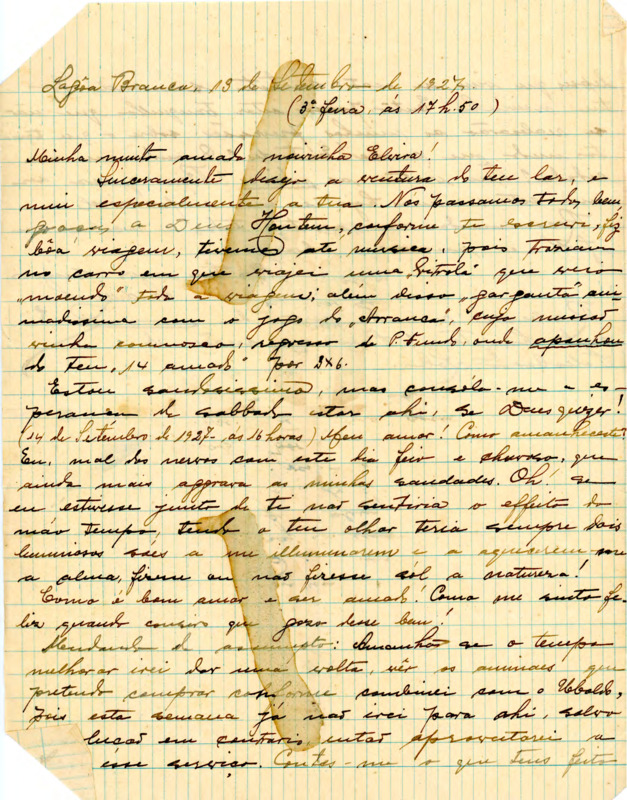 Lagôa Branca, 13 de Setembro de 1927.
(3ª feira, ás 17 h. 50)
Minha muito amada noivinha Elvira!
Sinceramente desejo a ventura do teu lar, e
mui especialmente, a tua. Nós passamos todos bem,
graças a Deus. Hontem, conforme te escrevi, fiz
bôa viagem, tivemos até musica, pois traziam
no carro em que viajei uma vitrola que veio
"moendo" toda a viagem; além disso "garganta" ani-
madissima com o jogo do "Arranca", cujo
vinha comnosco, regresso de P. Fundo, onde apanhou
do teu "14 amado" por 2x6.
Estou saudosissimo, mas consóla-me a es-
perança de sabbado estar ahi, se Deus quizer!
(14 de Setembro de 1927 - ás 16 horas) Meu amor! Como amanheceste?
Eu, mal dos nervos com este dia feio e chuvoso, que
ainda mais aggrava as minhas saudades. Oh! se
eu estivesse junto de ti não sentiria o effeito do
máo tempo, tendo o teu olhar teria sempre dois
luminosos sóes a me illuminarem e a aquecerem-me
a alma, fizesse ou não fizesse sól a natureza!
Como é bom amar e ser amado! Como me sinto fe-
liz quando penso que gozo desse bem!
Mudando de assumpto: Amanhã se o tempo
melhorar irei dar uma volta, vêr os animaes que
pretendo comprar conforme combinei com o Ubaldo,
pois esta semana já não irei para ahi, salvo
em contrario, então aproveitarei a
esse serviço. Contes-me o que tens feito